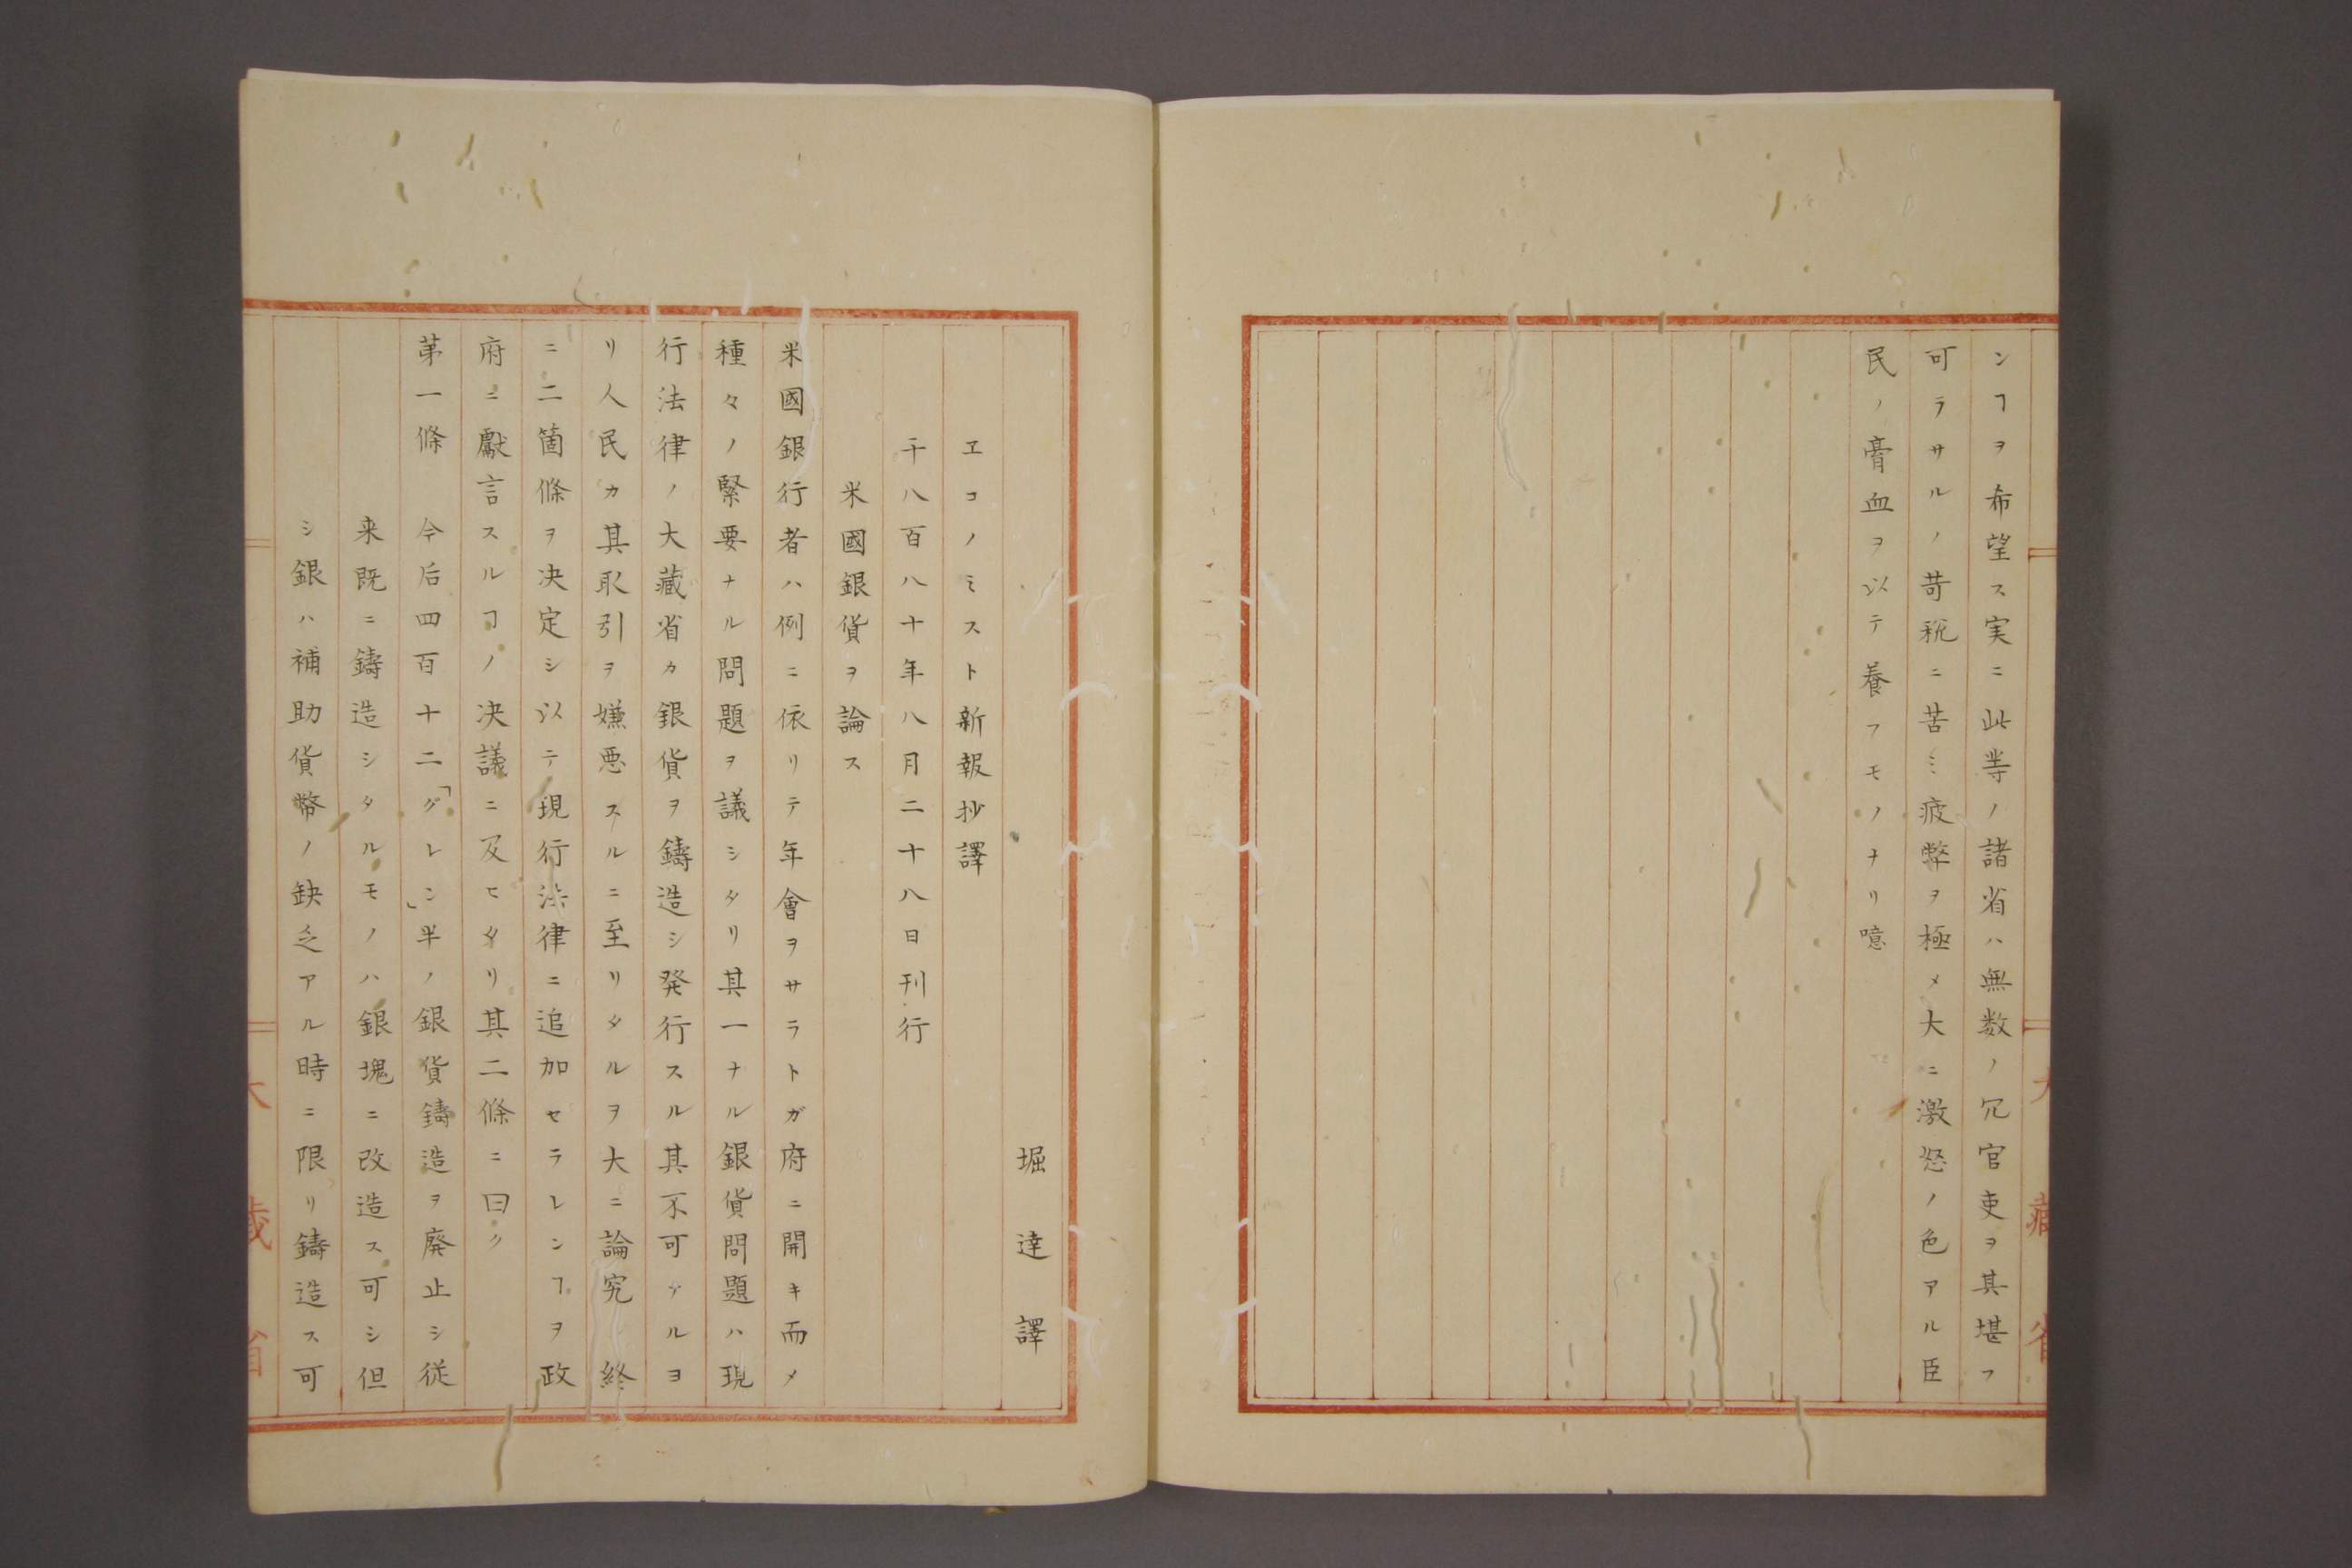 ンヿヲ希望ス実ニ此等ノ諸省ハ無数ノ冗官吏ヲ其堪フ
可ラサルノ苛税ニ苦ミ疲弊ヲ極メ大ニ激怒ノ色アル臣
民ノ膏血ヲ以テ養フモノナリ噫
大藏省
堀達譯
エコノミスト新報抄譯
千八百八十年八月二十八日刊行
米國銀貨ヲ論ス
米國銀行者ハ例ニ依リテ年會ヲサラトガ府ニ開キ而メ
種々ノ緊要ナル問題ヲ議シタリ其一ナル銀貨問題ハ現
行法律ノ大藏省カ銀貨ヲ鋳造シ発行スル其不可ナルヨ
リ人民カ其取引ヲ嫌悪スルニ至リタルヲ大ニ論究終
ニ二箇條ヲ决定シ以テ現行法律ニ追加セラレンヿヲ政
府ニ獻言スルヿノ决議ニ及ヒタリ其二條ニ曰ク
苐一條 今后四百十二「グレン」半ノ銀貨鑄造ヲ廃止シ従
来既ニ鑄造シタルモノハ銀塊ニ改造ス可シ但
シ銀ハ補助貨幣ノ缺乏アル時ニ限リ鑄造ス可
大藏省